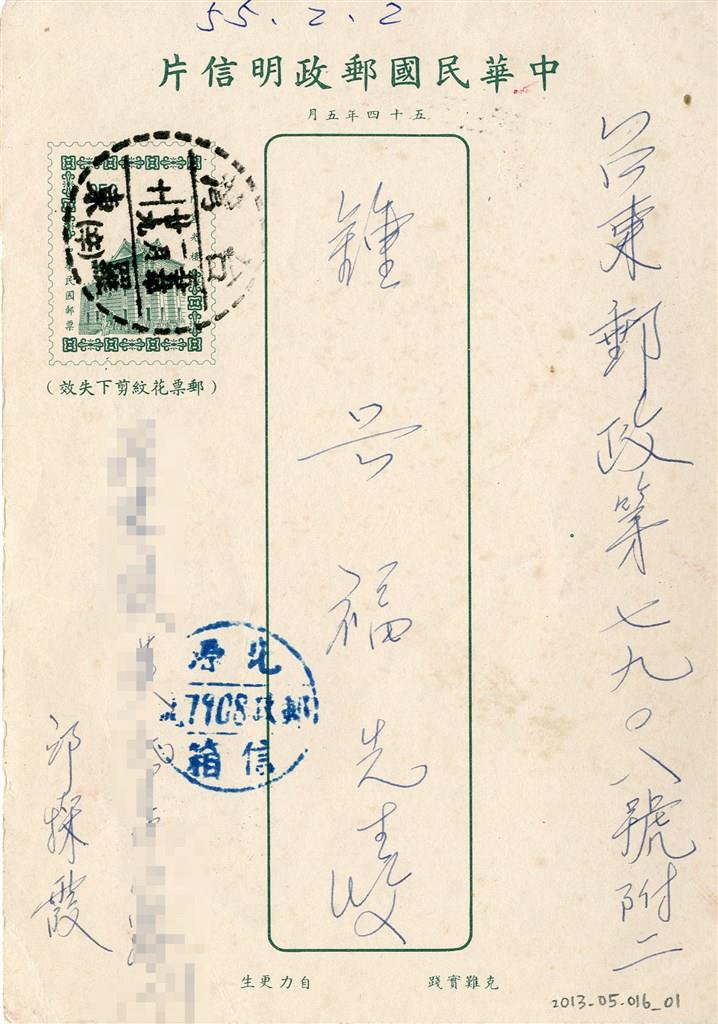 55.2.2
中華民國郵政明信片
五十四年五月
台東郵政第七九〇八號附二
鍾 福先生收
國郵票
(郵票花紋剪下失效)
台灣
郵政7908
信箱
邱採霞
克難實踐 自力更生
2013-05-016_01